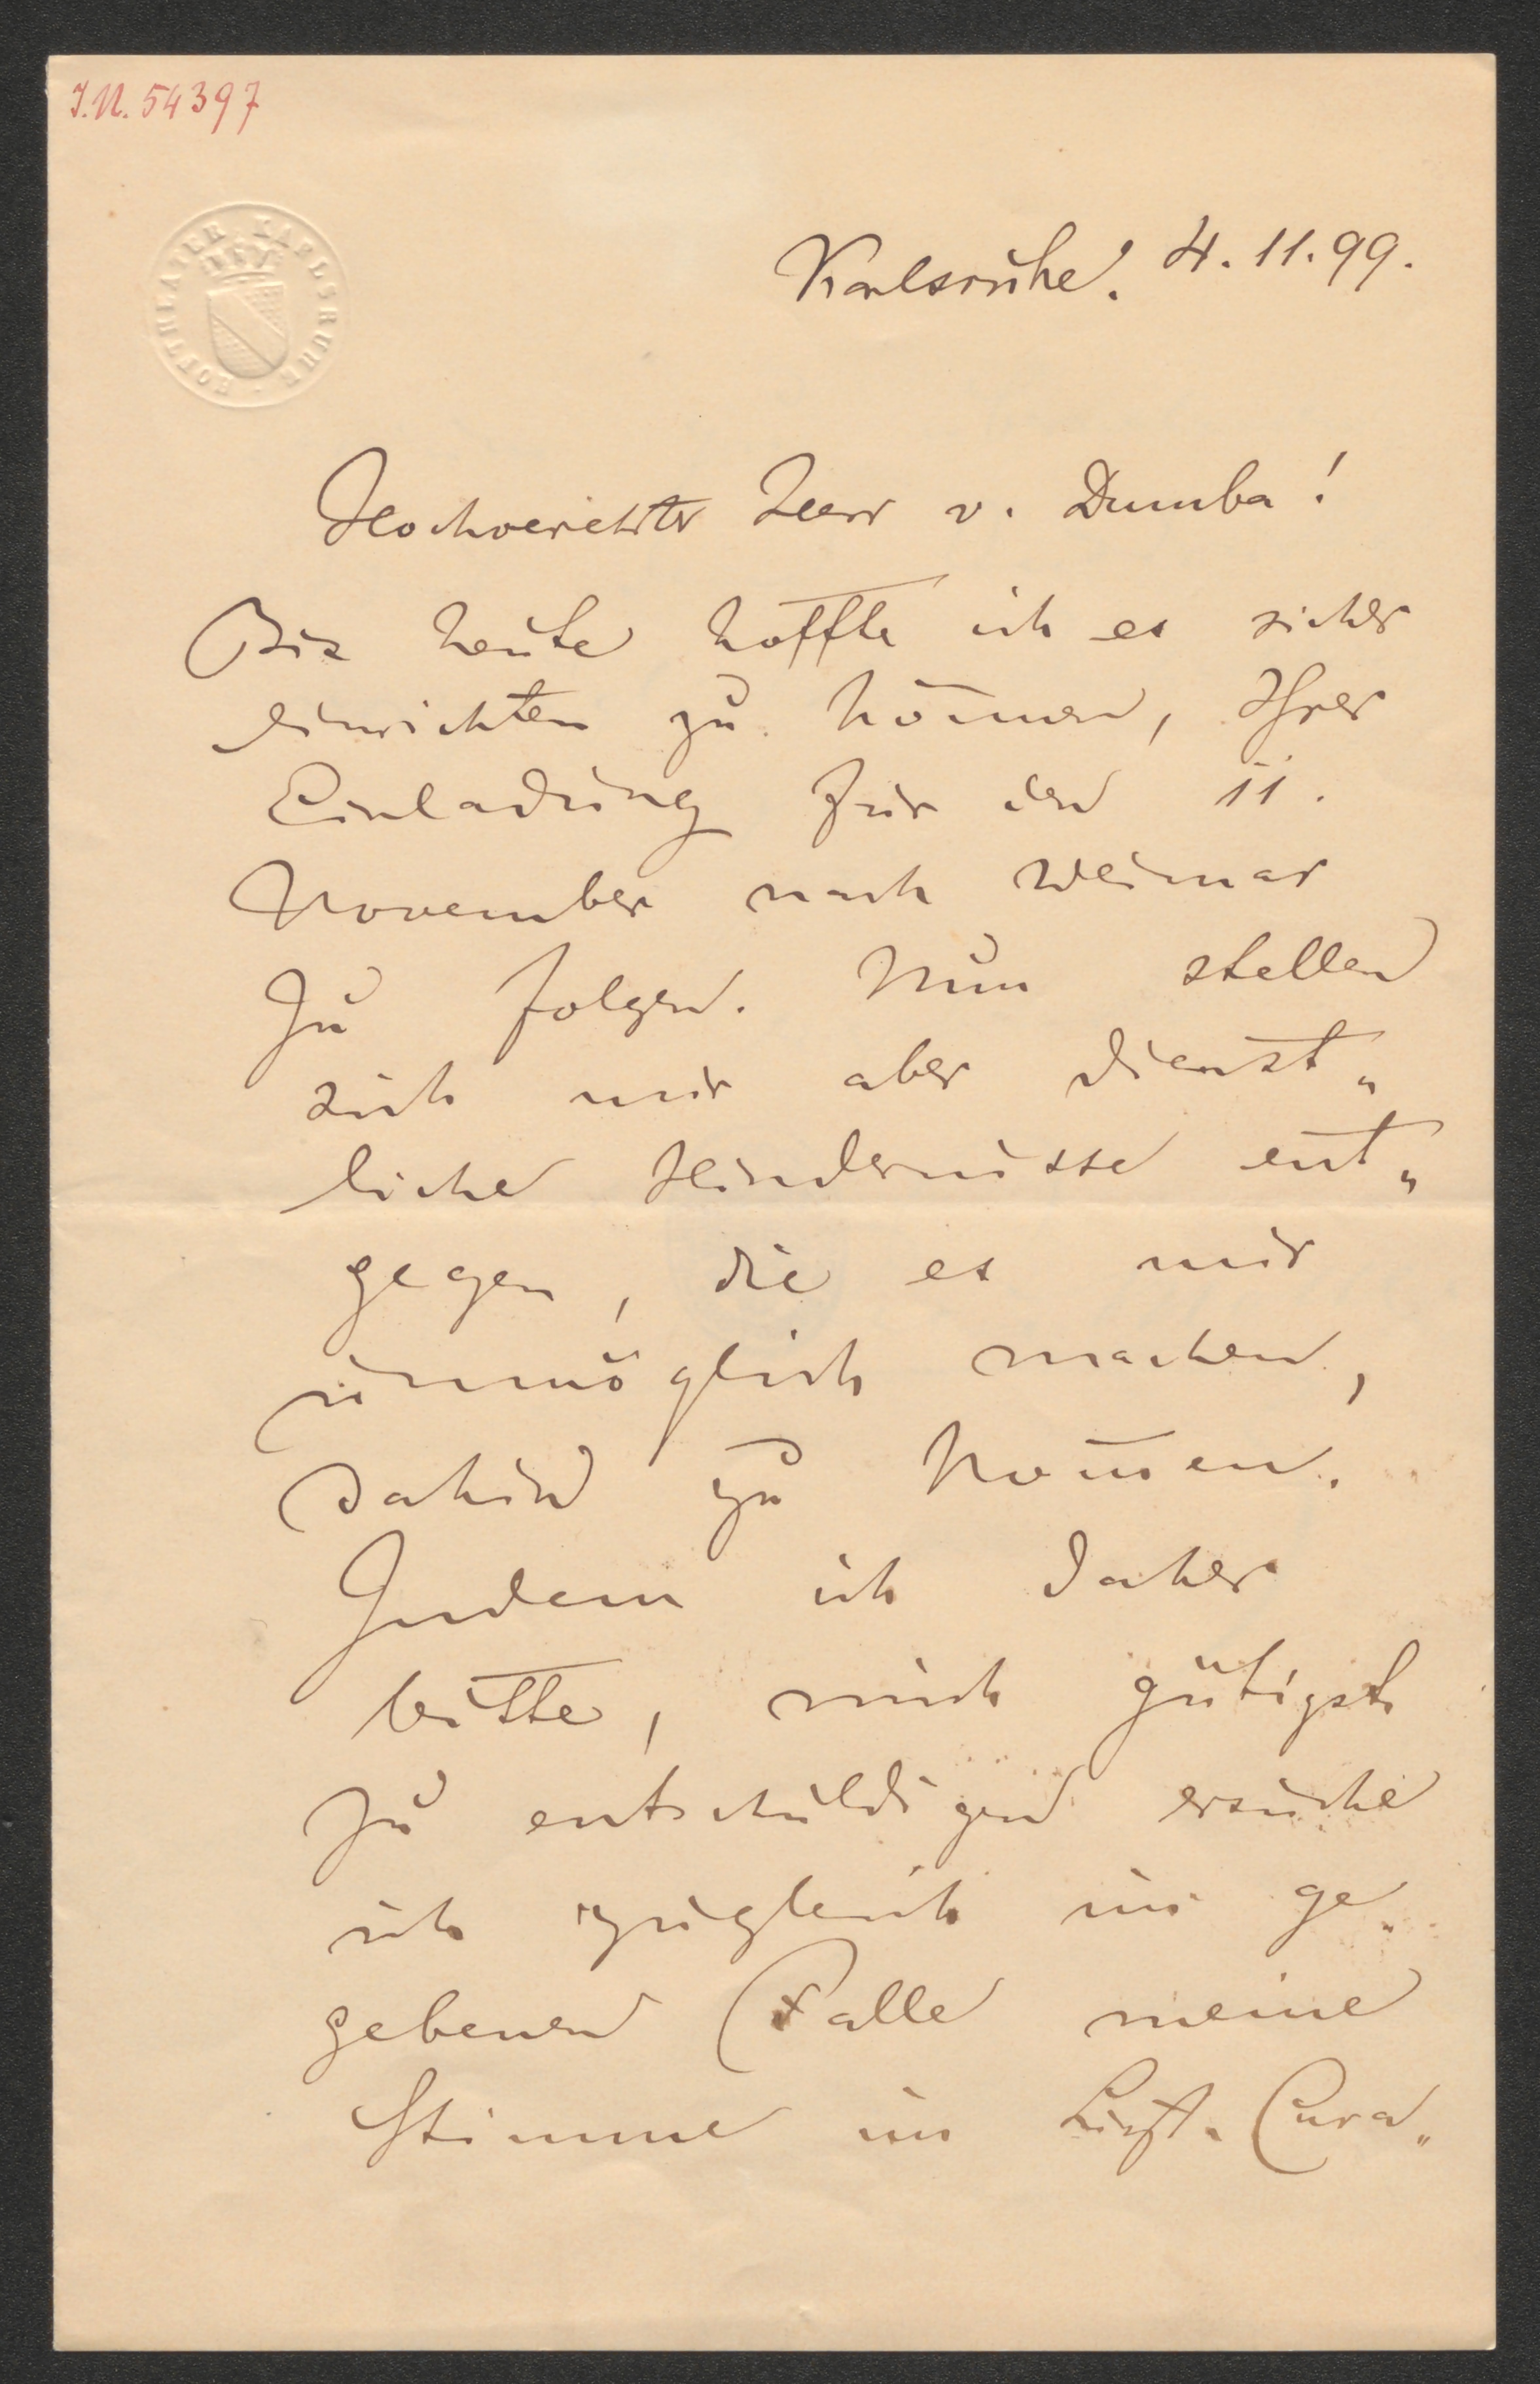 I.N. 54397
HOFTHEATER KARLSRUHE
Karlsruhe. 4. 11. 99.
Hochverehrter Herr v. Dumba!
Bis heute hoffte ich es sicher
einrichten zu können, Ihrer
Einladung für den 11.
November nach Weimar
zu folgen. Nun stellen
sich mir aber dienst„
liche Hindernisse ent„
gegen, die es mir
unmöglich machen,
dahin zu kom̄en.
Indem ich daher
bitte, mich gütigst
zu entschuldigen ersuche
ich zugleich im ge„
gebenen Falle meine
Stimme im Liszt-Cura„